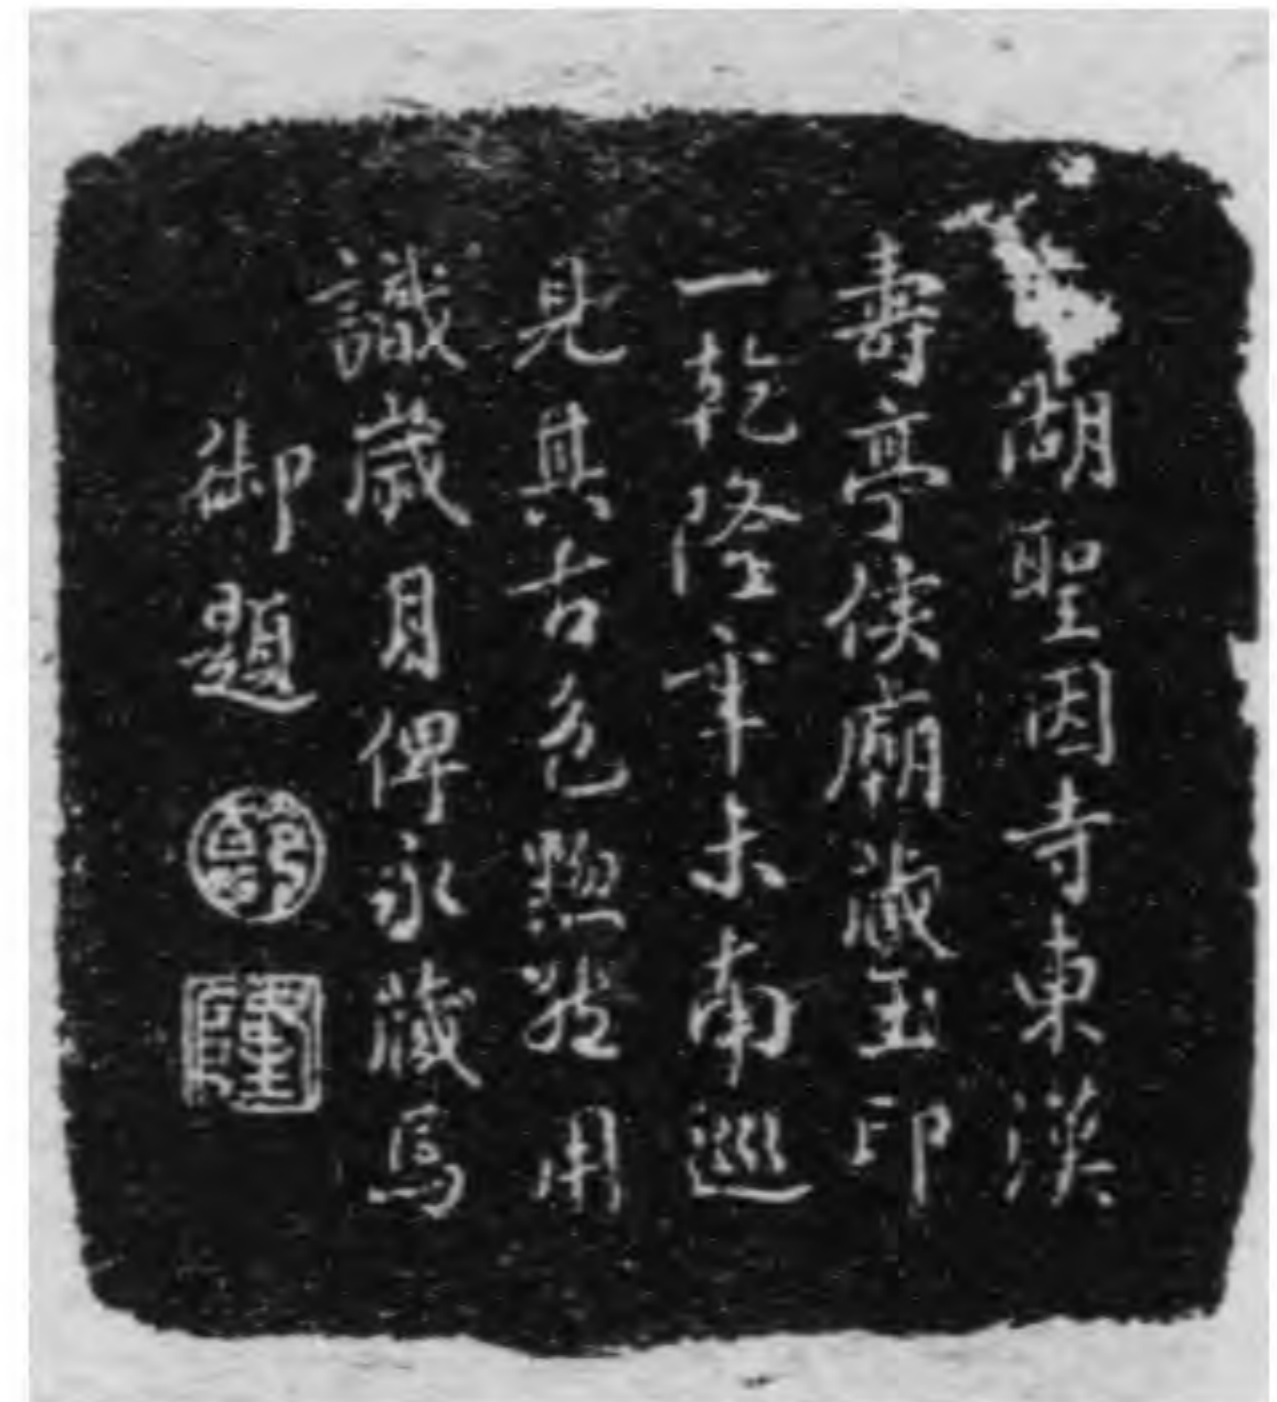 湖聖因寺東漢
壽亭侯廟藏玉印
一乾隆辛未南巡
見其古色黝然用
識歲月俾永藏焉
御題
乾
隆